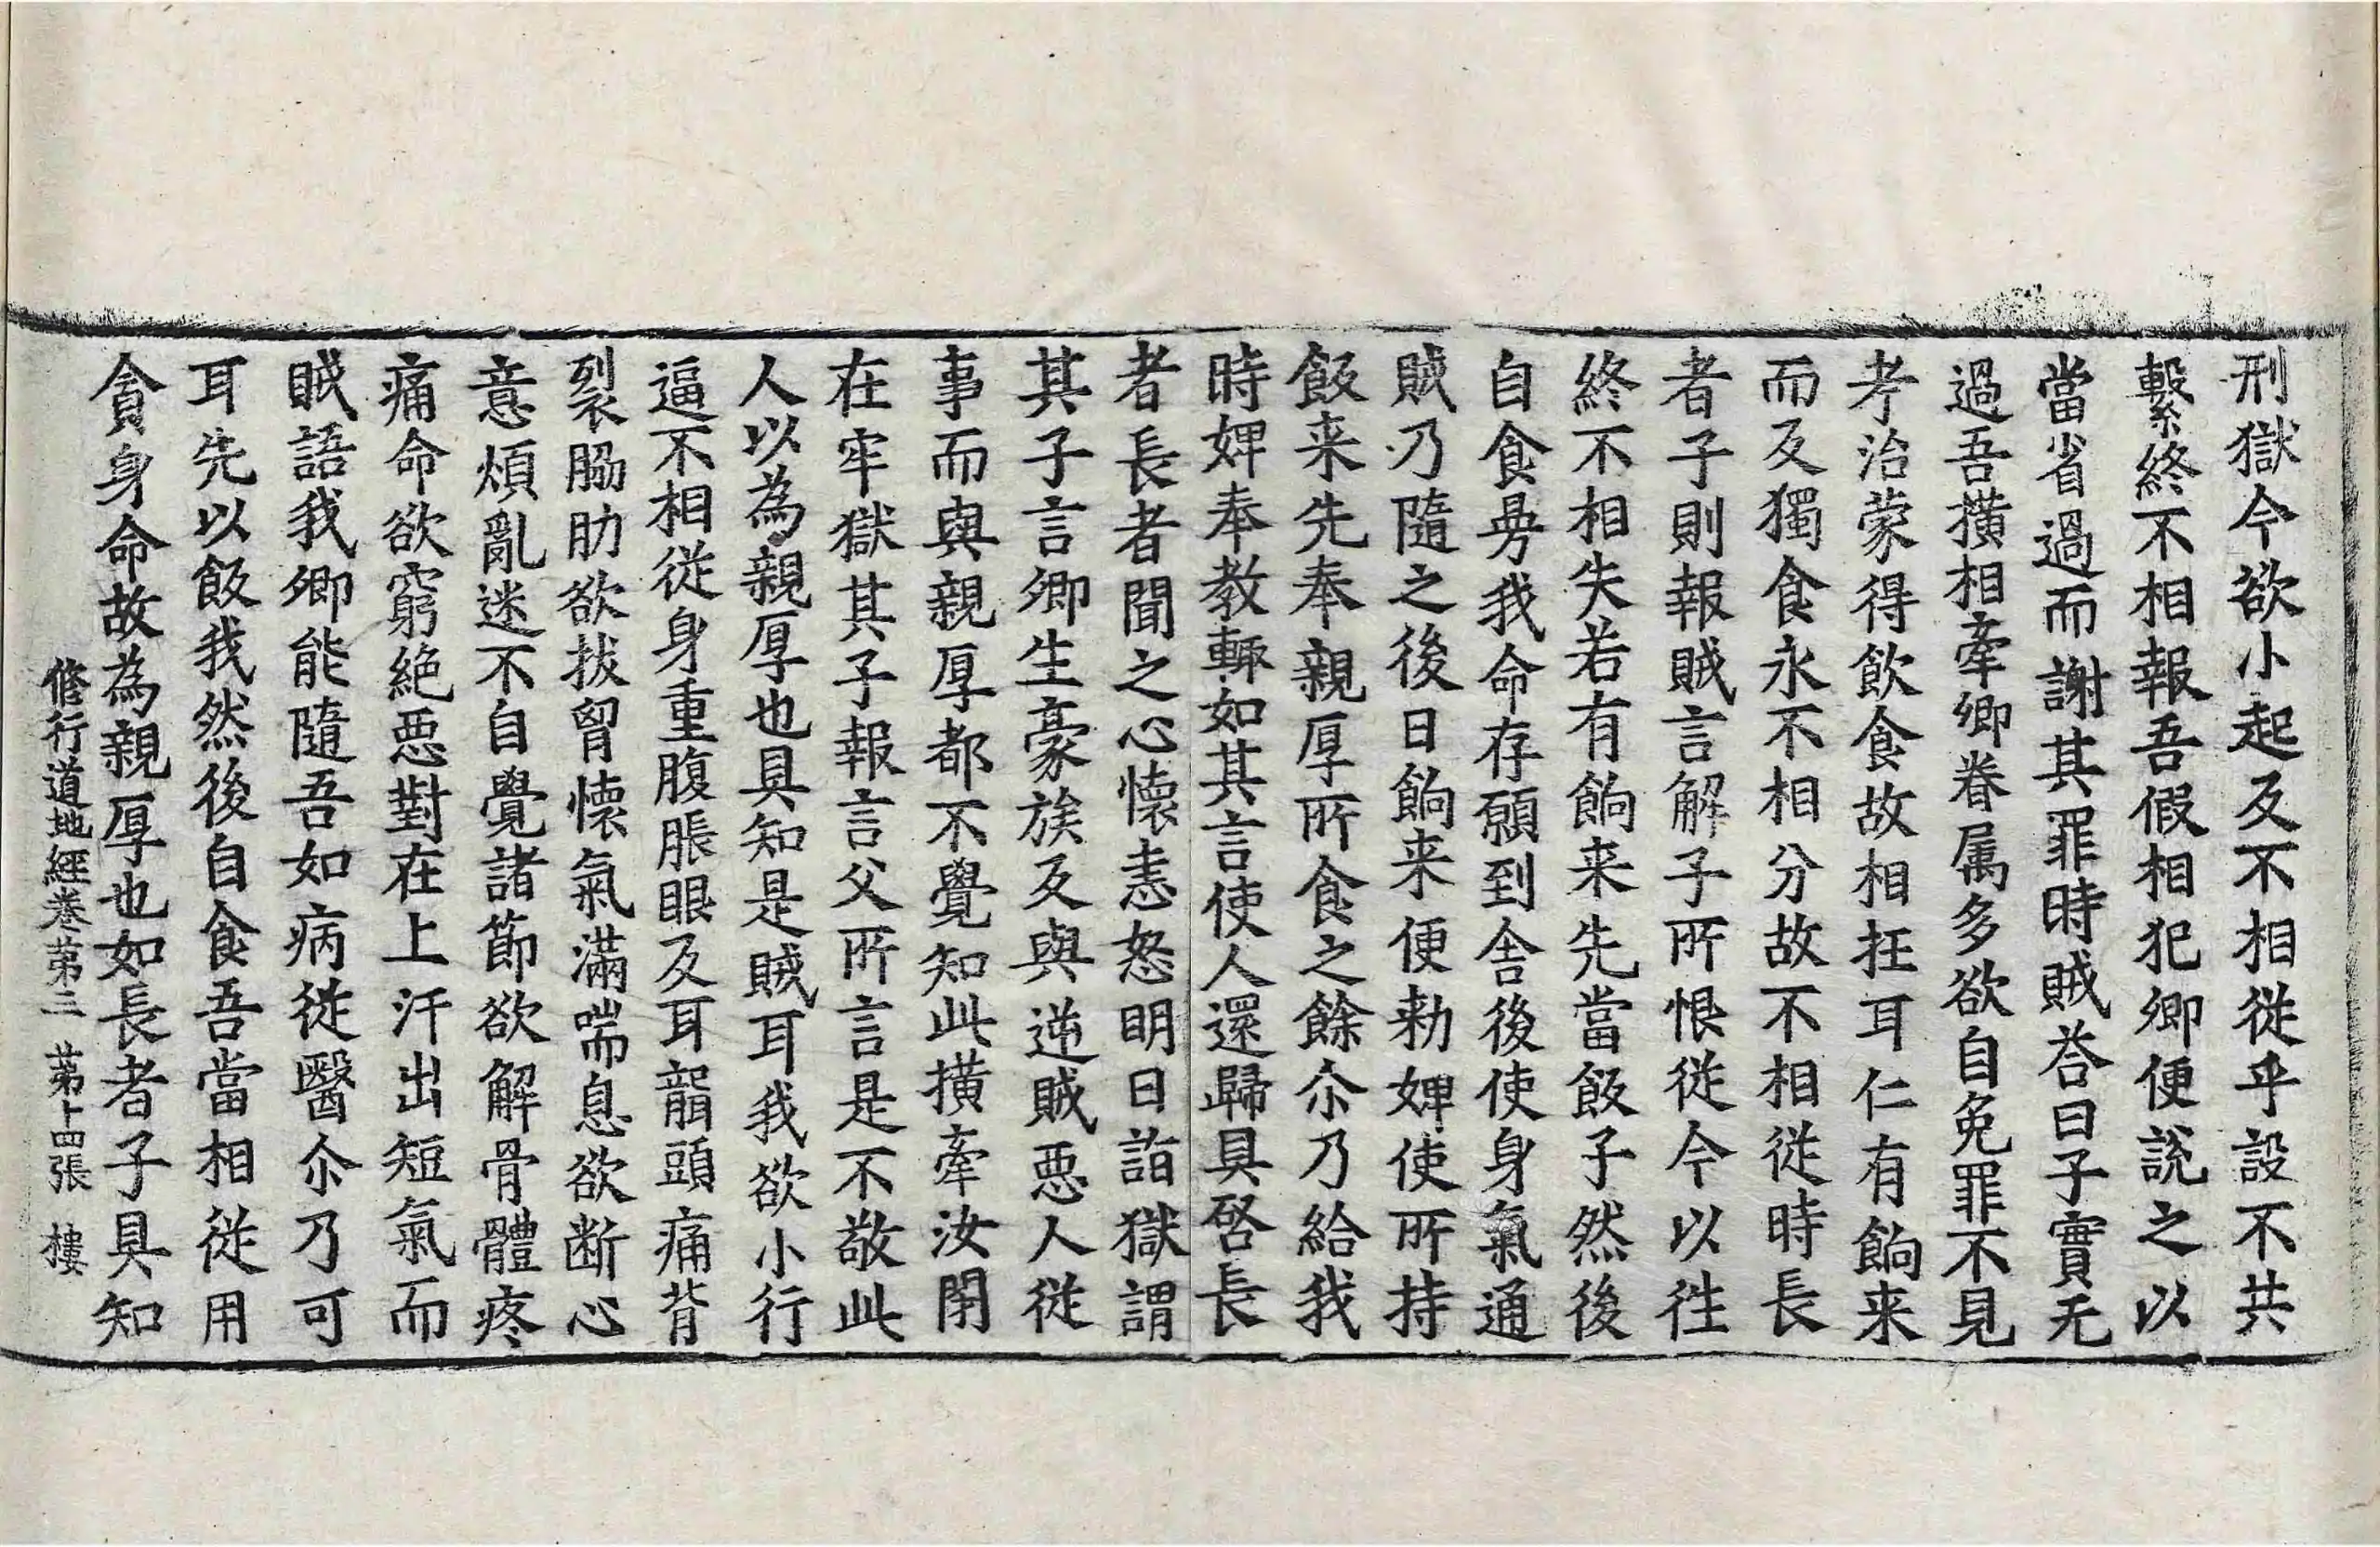 刑獄今欲小起反不相從乎設不共
繫終不相報吾假相犯卿便說之以
當省過而謝其罪時賊荅曰子實无
過吾撗相牽卿眷属多欲自免罪不見
考治蒙得飲食故相抂耳仁有餉来
而反獨食永不相分故不相從時長
者子則報賊言解子所恨從今以往
終不相失若有餉来先當飯子然後
自食㫄我命存願到舍後使身氣通
賊乃隨之後日餉来便勑婢使所持
飯来先奉親厚所食之餘尒乃給我
時婢奉教輙如其言使人還歸具啓長
者長者聞之心懷恚怒明日詣獄謂
其子言卿生豪族反與逆賊惡人從
事而與親厚都不覺知此撗牽汝閇
在牢獄其子報言父所言是不敬此
人以為親厚也具知是賊耳我欲小行
逼不相從身重腹脹眼反耳聾頭痛背
裂脇肋欲拔胷懷氣滿喘息欲断心
意煩亂迷不自覺諸節欲解骨體疼
痛命欲窮絕惡對在上汗出短氣而
賊語我卿能隨吾如病從醫尒乃可
耳先以飯我然後自食吾當相從用
貪身命故為親厚也如長者子具知
修行道地經卷第三　第十四張　樓